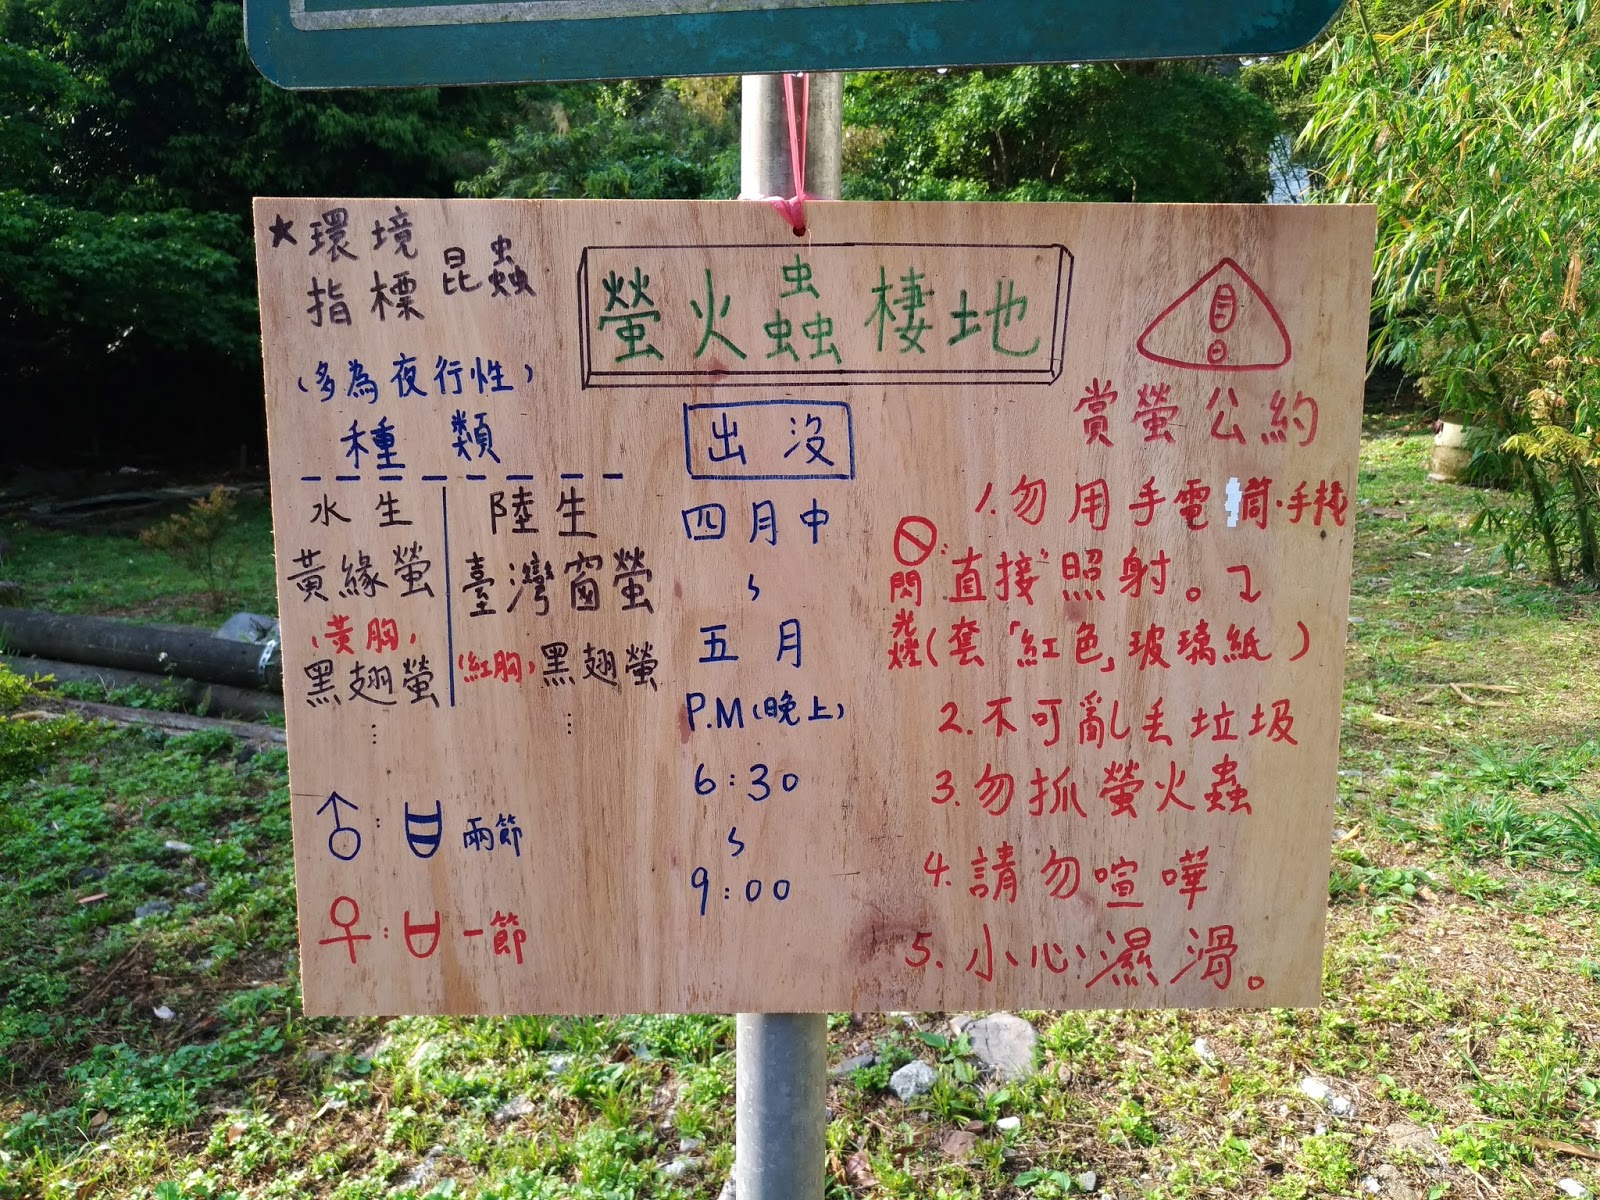 ★環境
指標 昆蟲
(多為夜行性)
種類
水生
黃緣螢
(黃胸)
黑翅螢
⋮
陸生
臺灣窗螢
(紅胸)黑翅螢
⋮
♂: 兩節
♀: 一節
螢火蟲棲地
出沒
四月中
~
五月
P.M(晚上)
6:30
~
9:00
賞螢公約
1.勿用手電筒·手機
直接照射。
(套「紅色」玻璃紙)
閃光燈
2.不可亂丟垃圾
3.勿抓螢火蟲
4.請勿喧嘩
5.小心濕滑。